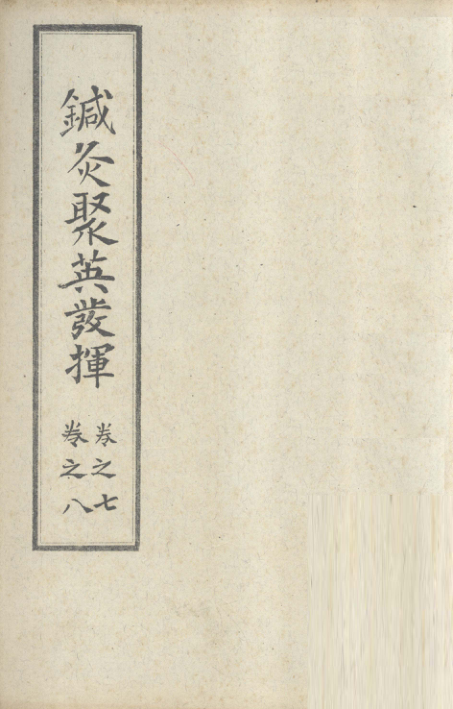 鍼灸聚英發揮
卷之七
卷之八